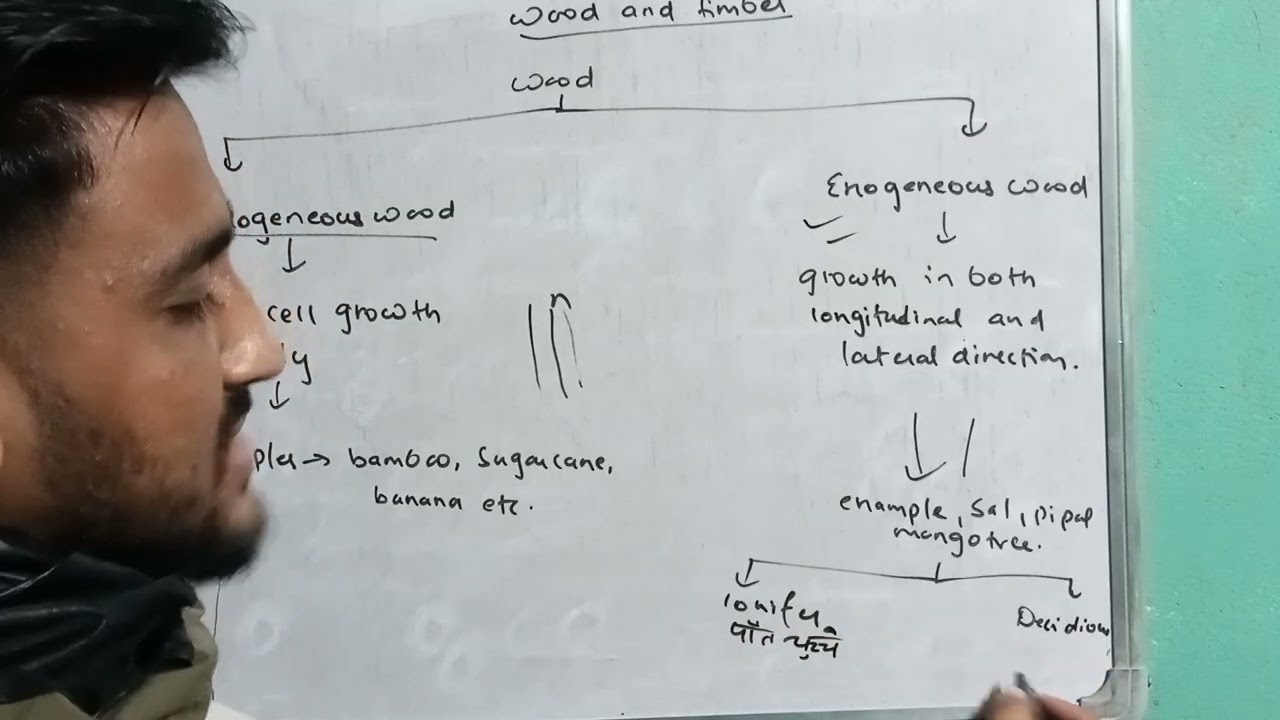 wood and timber
wood
ogeneous wood
cell growth
ly
ples → bamboo, Sugarcane,
banana etc.
n
Exogeneous wood
growth in both
longitudinal and
lateral direction.
example, Sal, pipal
mango tree.
Decidious